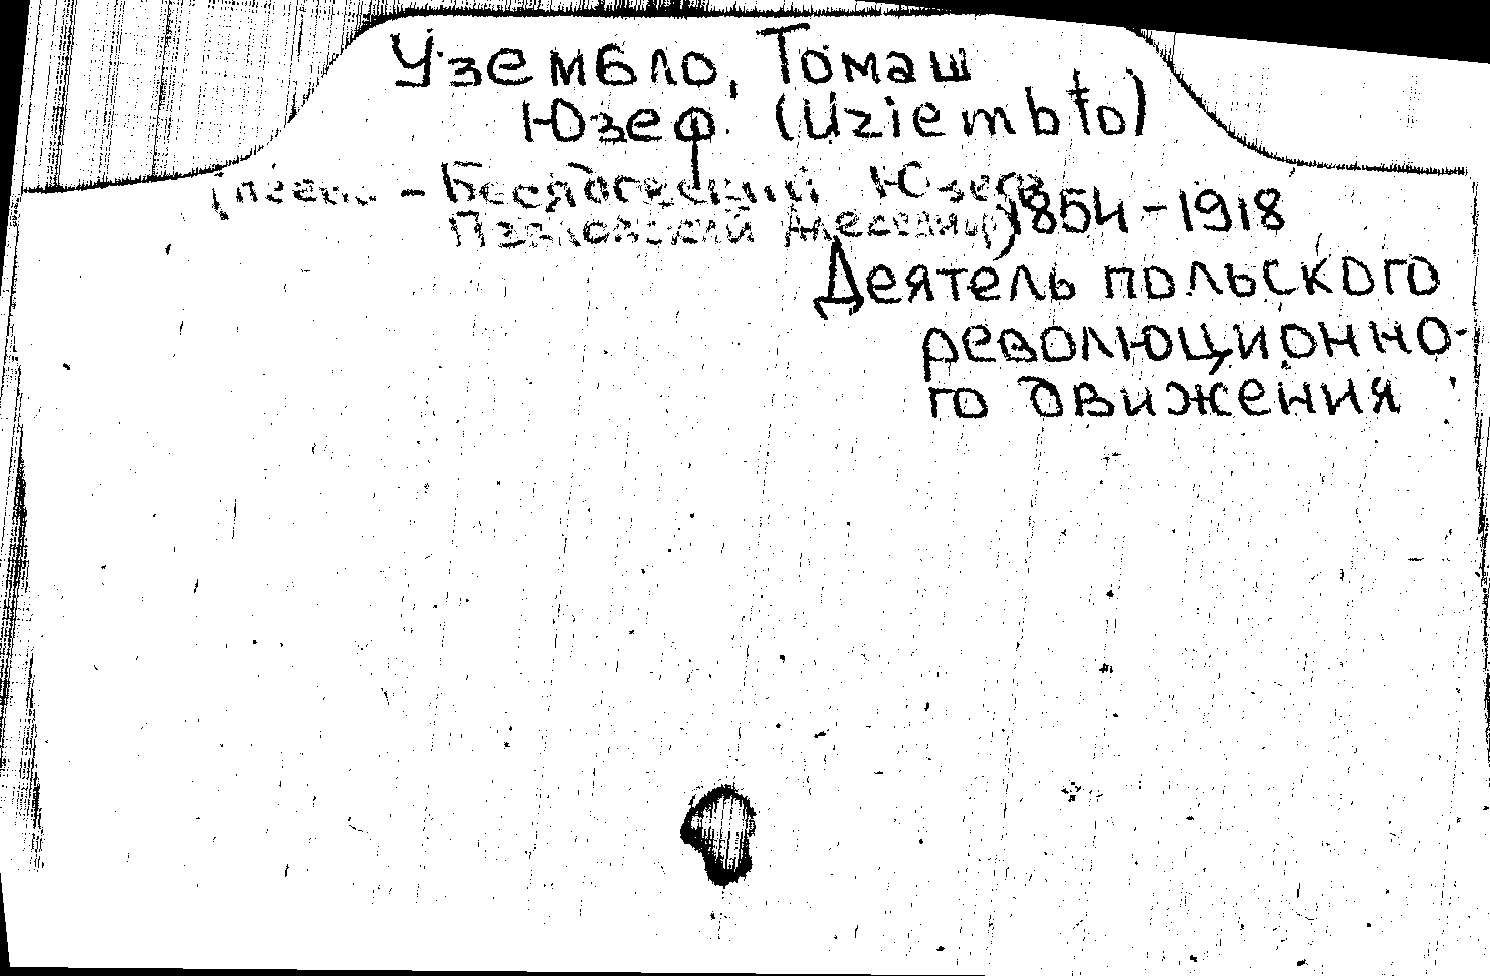 Узембло, Томаш
Юзеф (Uziembło)
(псевд. - Бесядовский Юзеф
Павловский
1854-1918
Деятель польского
революционно-
го движения